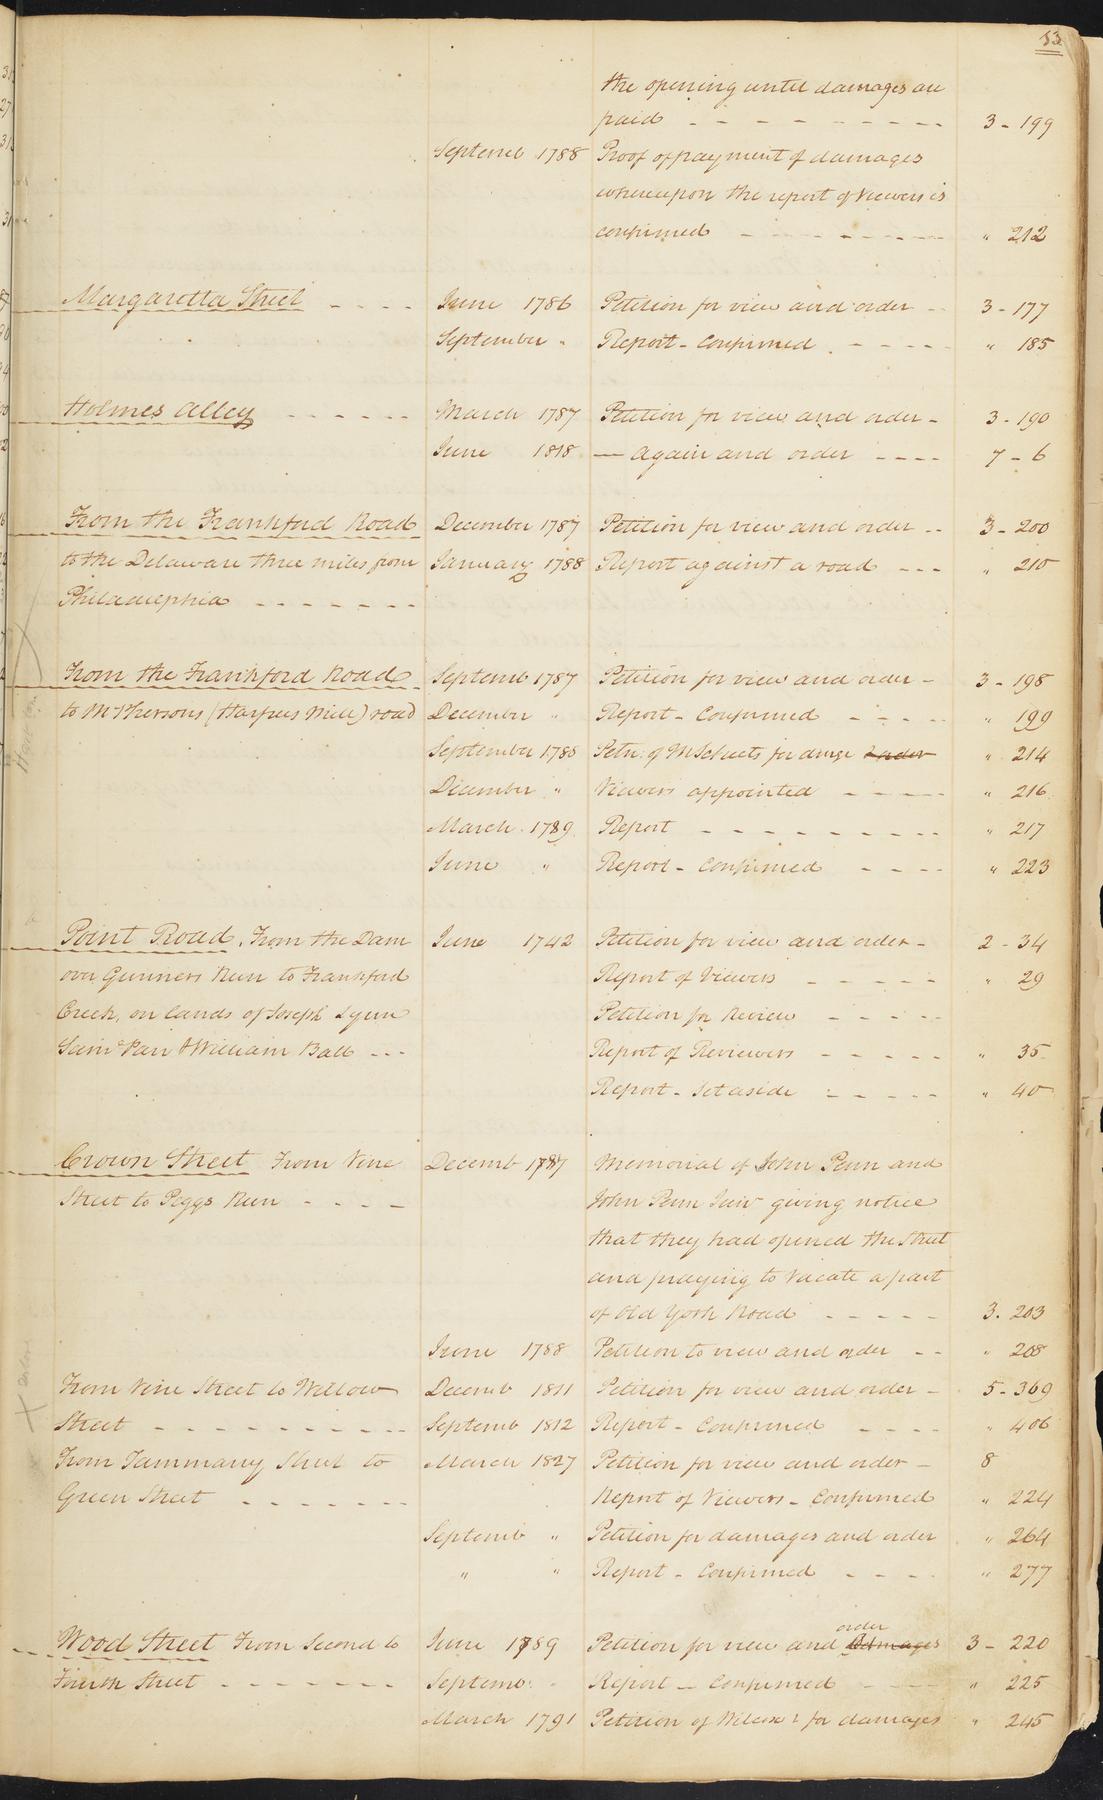 53
the opening until damages are
paid - - - - - - - - - 3 - 199
Septemb 1788 Proof of payment of damages
whereupon the report of Viewers is
confirmed - - - - - - - " 212
Margaretta Street - - - - June 1786 Petition for view and order - - 3 - 177
September " Report - Confirmed - - - - " 185
Holmes Alley - - - - - - March 1787 Petition for view and order - 3 - 190
June 1818 — again and order - - - - 7 - 6
From the Frankford Road December 1787 Petition for view and order - - 3 - 200
to the Delaware three miles from January 1788 Report against a road - - - " 210
Philadelphia - - - - - - -
From the Frankford Road Septemb 1787 Petition for view and order - 3 - 198
to McPhersons (Harpers Mill) road December " Report - Confirmed - - - - " 199
September 1788 Petn: of for damge " 214
December " Viewers appointed - - - - " 216
March 1789 Report - - - - - - - - - " 217
June " Report - Confirmed - - - - " 223
Point Road. From the Dam June 1742 Petition for view and order - 2 - 34
over Gunners Run to Frankford Report of Viewers - - - - - " 29
Creek, on lands of Joseph Lynn Petition for Review - - - - -
Saml Parr & William Ball - - - Report of Reviewers - - - - - " 35
Report - Set aside - - - - - " 40
Crown Street From Vine Decemb 1787 Memorial of John Penn and
Street to Peggs Run - - - - John Penn Junr giving notice
that they had opened the Street
and praying to vacate a part
of Old York Road - - - - - 3. 203
June 1788 Petition to view and order - - " 208
From Vine Street to Willow Decemb 1811 Petition for view and order - 5 - 369
Street - - - - - - - - - - Septemb 1812 Report - Confirmed - - - - " 406
From Tammany Street to March 1827 Petition for view and order - 8
Green Street - - - - - - - Report of Viewers - Confirmed " 224
Septemb " Petition for damages and order " 264
" " Report - Confirmed - - - - " 277
order
Wood Street From Second to June 1789 Petition for view and damages 3 - 220
Fourth Street - - - - - - - Septemb " Report - Confirmed - - - - " 225
March 1791 Petition of for damages " 245